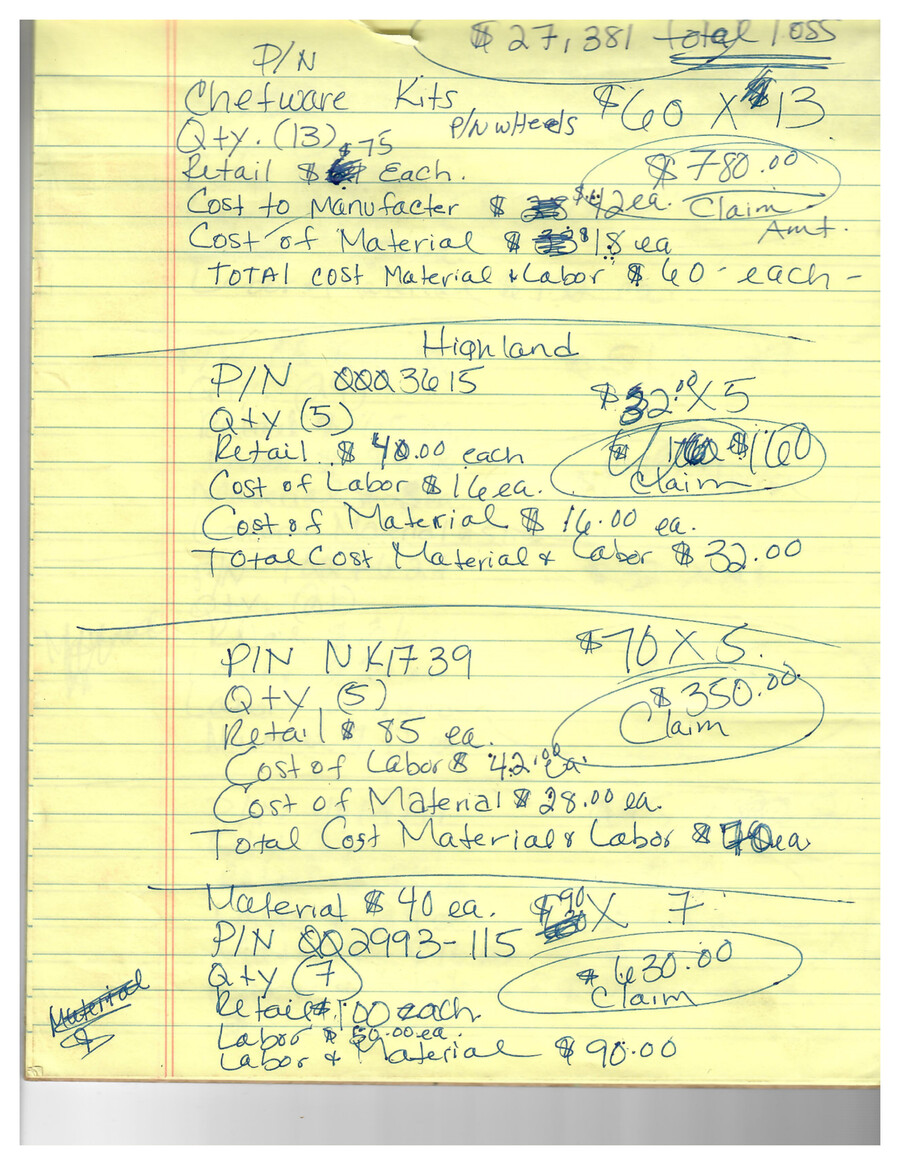 $ 27,381 total loss
P/N
Chefware Kits $60 X $13
Qty. (13) P/N wheels
$75
Retail $ Each. $ 780.00
Cost to Manufacter $ $42 ea. Claim
Amt.
Cost of Material $ $18 ea
TOTAL COST Material & Labor $ 60 - each -
Highland
P/N QQQ3615 $32.00 X 5
Qty (5)
Retail $ 40.00 each $160
Cost of Labor $ 16 ea. Claim
Cost of Material $ 16.00 ea.
Total Cost Material & Labor $ 32.00
P/N NK1739 $70 X 5.
Qty (5) $ 350.00
Retail $ 85 ea. Claim
Cost of Labor $ 42.00 ea.
Cost of Material $ 28.00 ea.
Total Cost Material & Labor $ 70 ea
Material $ 40 ea. $90 X 7
P/N QQ2993-115
Qty (7) $ 630.00
Retail $100 each. Claim
Material
$
Labor $ 50.00 ea.
Labor & Material $ 90.00